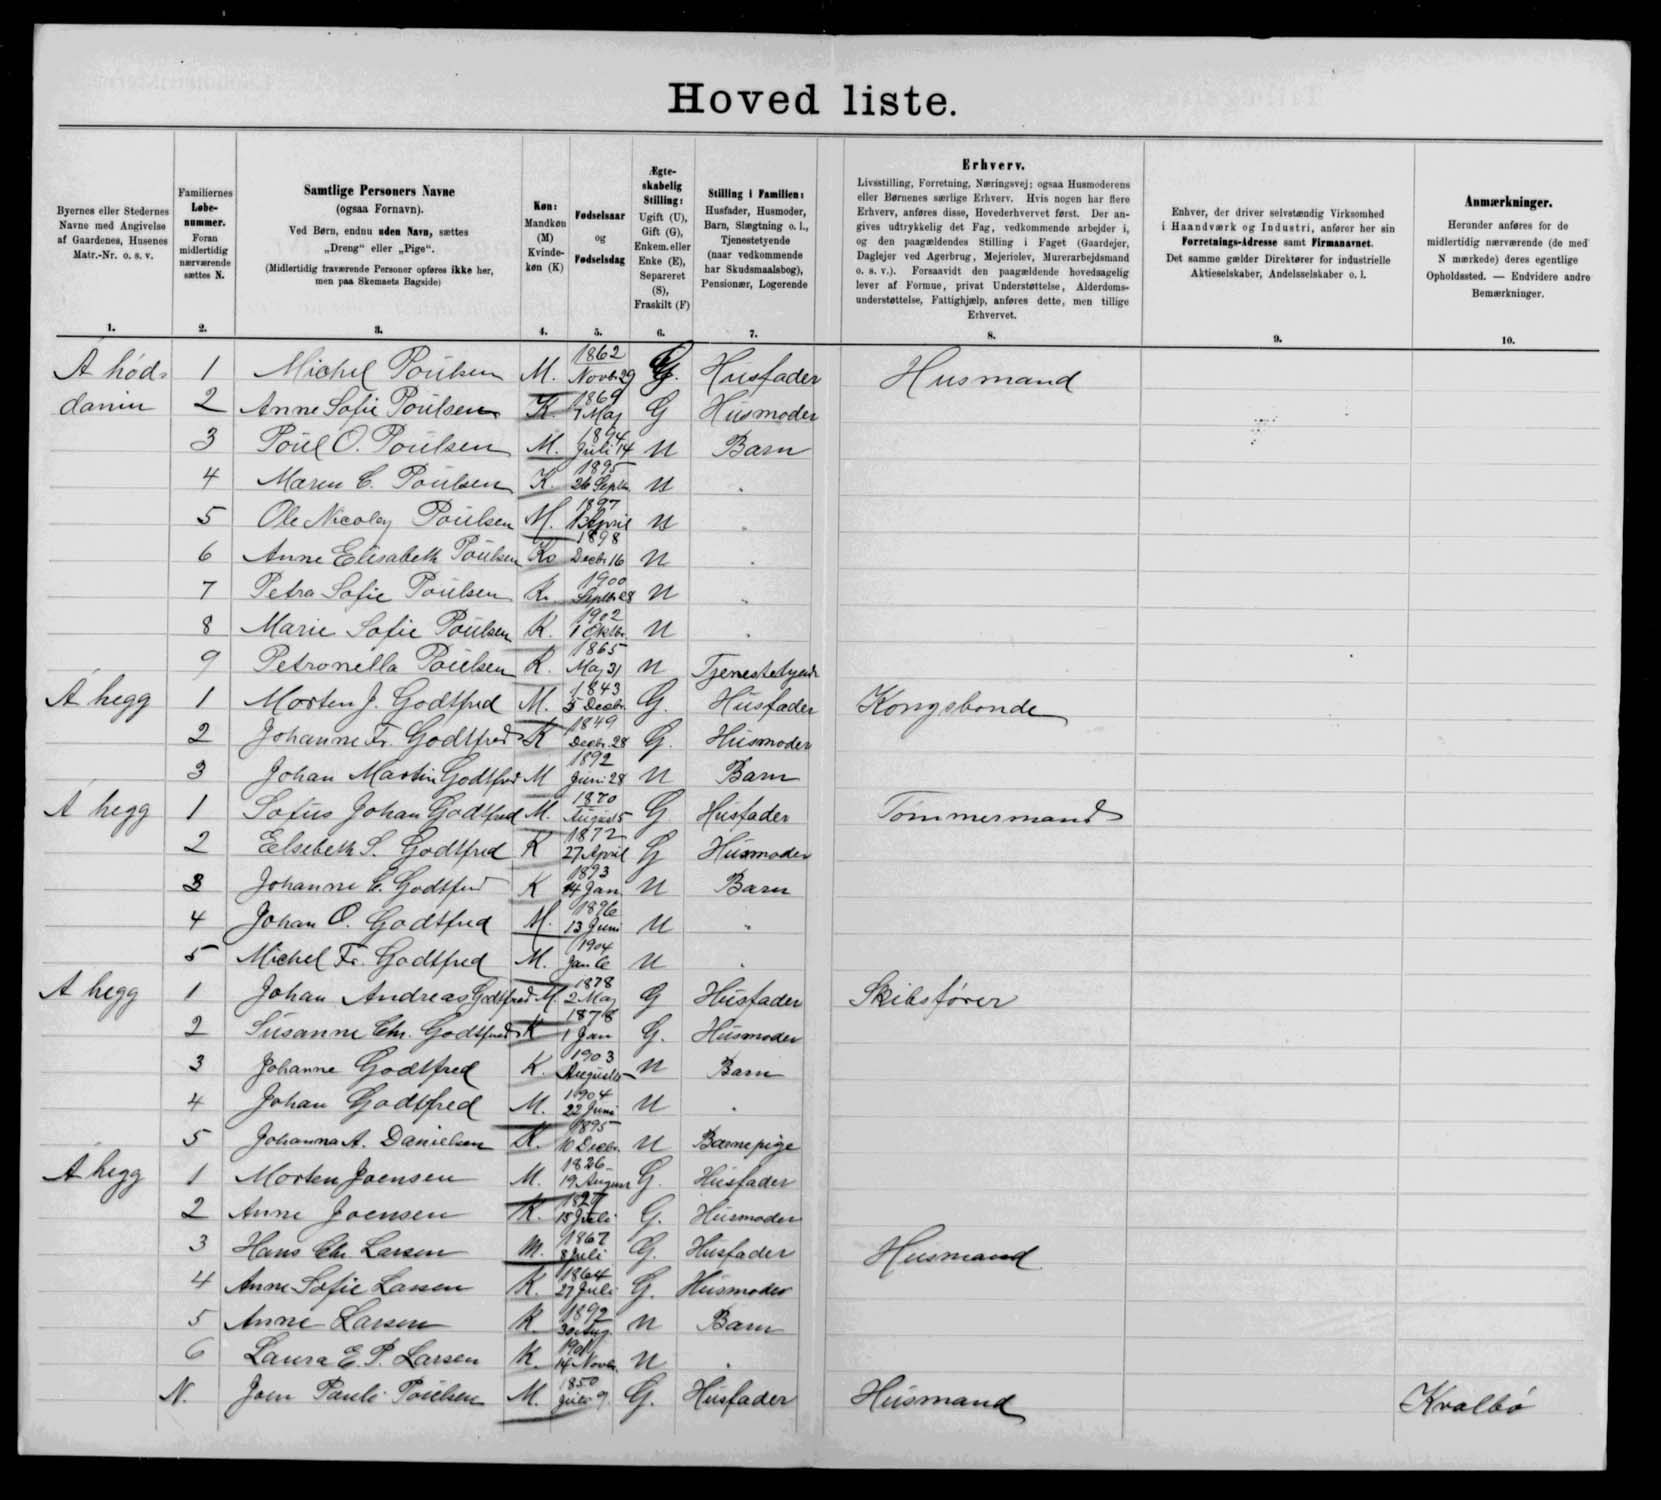 Hoved liste.
Byernes eller Stedernes Navne med Angivelse af Gaardenes, Husenes Matr.-Nr. o. s. v.
Familiernes Løbe-nummer. Foran midlertidig nærværende sættes N.
Samtlige Personers Navne (ogsaa Fornavn). Ved Børn, endnu uden Navn, sættes „Dreng“ eller „Pige“. (Midlertidig fraværende Personer opføres ikke her, men paa Skemaets Bagside)
Køn: Mandkøn (M) Kvinde-køn (K)
Fødselsaar og Fødselsdag
Ægte-skabelig Stilling: Ugift (U), Gift (G), Enkem. eller Enke (E), Separeret (S), Fraskilt (F)
Stilling i Familien: Husfader, Husmoder, Barn, Slægtning o. l., Tjenestetyende (naar vedkommende har Skudsmaalsbog), Pensionær, Logerende
Erhverv. Livsstilling, Forretning, Næringsvej; ogsaa Husmoderens eller Børnenes særlige Erhverv. Hvis nogen har flere Erhverv, anføres disse, Hovederhvervet først. Der angives udtrykkelig det Fag, vedkommende arbejder i, og den paagældendes Stilling i Faget (Gaardejer, Daglejer ved Agerbrug, Mejerielev, Murerarbejdsmand o. s. v.). Forsaavidt den paagældende hovedsagelig lever af Formue, privat Understøttelse, Alderdomsunderstøttelse, Fattighjælp, anføres dette, men tillige Erhvervet.
Enhver, der driver selvstændig Virksomhed i Haandværk og Industri, anfører her sin Forretnings-Adresse samt Firmanavnet. Det samme gælder Direktører for industrielle Aktieselskaber, Andelsselskaber o. l.
Anmærkninger. Herunder anføres for de midlertidig nærværende (de med N mærkede) deres egentlige Opholdssted. — Endvidere andre Bemærkninger.
1. 2. 3. 4. 5. 6. 7. 8. 9. 10.
Á hød- 1 Michel Poulsen M. 1862 Novbr 29 G. Husfader Husmand
danum 2 Anne Sofie Poulsen K. 1869 7 Maj G Husmoder
3 Poul O. Poulsen M. 1894 Juli 14 U Barn
4 Maren C. Poulsen K. 1895 26 Septbr U "
5 Ole Nicolay Poulsen M. 1897 13 April U "
6 Anne Elisabeth Poulsen K. 1898 Decbr 16 U "
7 Petra Sofie Poulsen K. 1900 Septbr 28 U "
8 Marie Sofie Poulsen K. 1902 1 Oktbr. U "
9 Petronella Poulsen K. 1865 Maj 31 U Tjenestetyende
Á hegg 1 Morten J. Godtfred M. 1843 5 Decbr G. Husfader Kongsbonde
2 Johanne Fr. Godtfred K 1849 Decbr. 28 G. Husmoder
3 Johan Martin Godtfred M 1892 Juni 28 U Barn
Á hegg 1 Sofus Johan Godtfred M. 1870 August 5 G Husfader Tømmermand
2 Elsebeth S. Godtfred K 1872 27 April G Husmoder
3 Johanne E. Godtfred K 1893 14 Jan U Barn
4 Johan O. Godtfred M. 1896 13 Juni U "
5 Michel Fr. Godtfred M. 1904 Jan 6 U "
Á hegg 1 Johan Andreas Godtfred M. 1878 2 Maj G Husfader Skibsfører
2 Susanne Chr. Godtfred K 1878 1 Jan G. Husmoder
3 Johanne Godtfred K. 1903 August 5 U Barn
4 Johan Godtfred M. 1904 22 Juni U "
5 Johanna A. Danielsen K. 1895 10 Decbr. U Barnepige
Á hegg 1 Morten Joensen M. 1826 19 August G. Husfader
2 Anne Joensen K. 1827 15 Juli G. Husmoder
3 Hans Chr. Larsen M. 1867 8 Juli G. Husfader Husmand
4 Anne Sofie Larsen K. 1864 27 Juli G. Husmoder
5 Anne Larsen K. 1892 30 Aug. U Barn
6 Laura E. P. Larsen K. 1901 14 Novbr. U "
N. Joen Pauli Poulsen M. 1850 Juli 9. G. Husfader Husmand Kvalbø